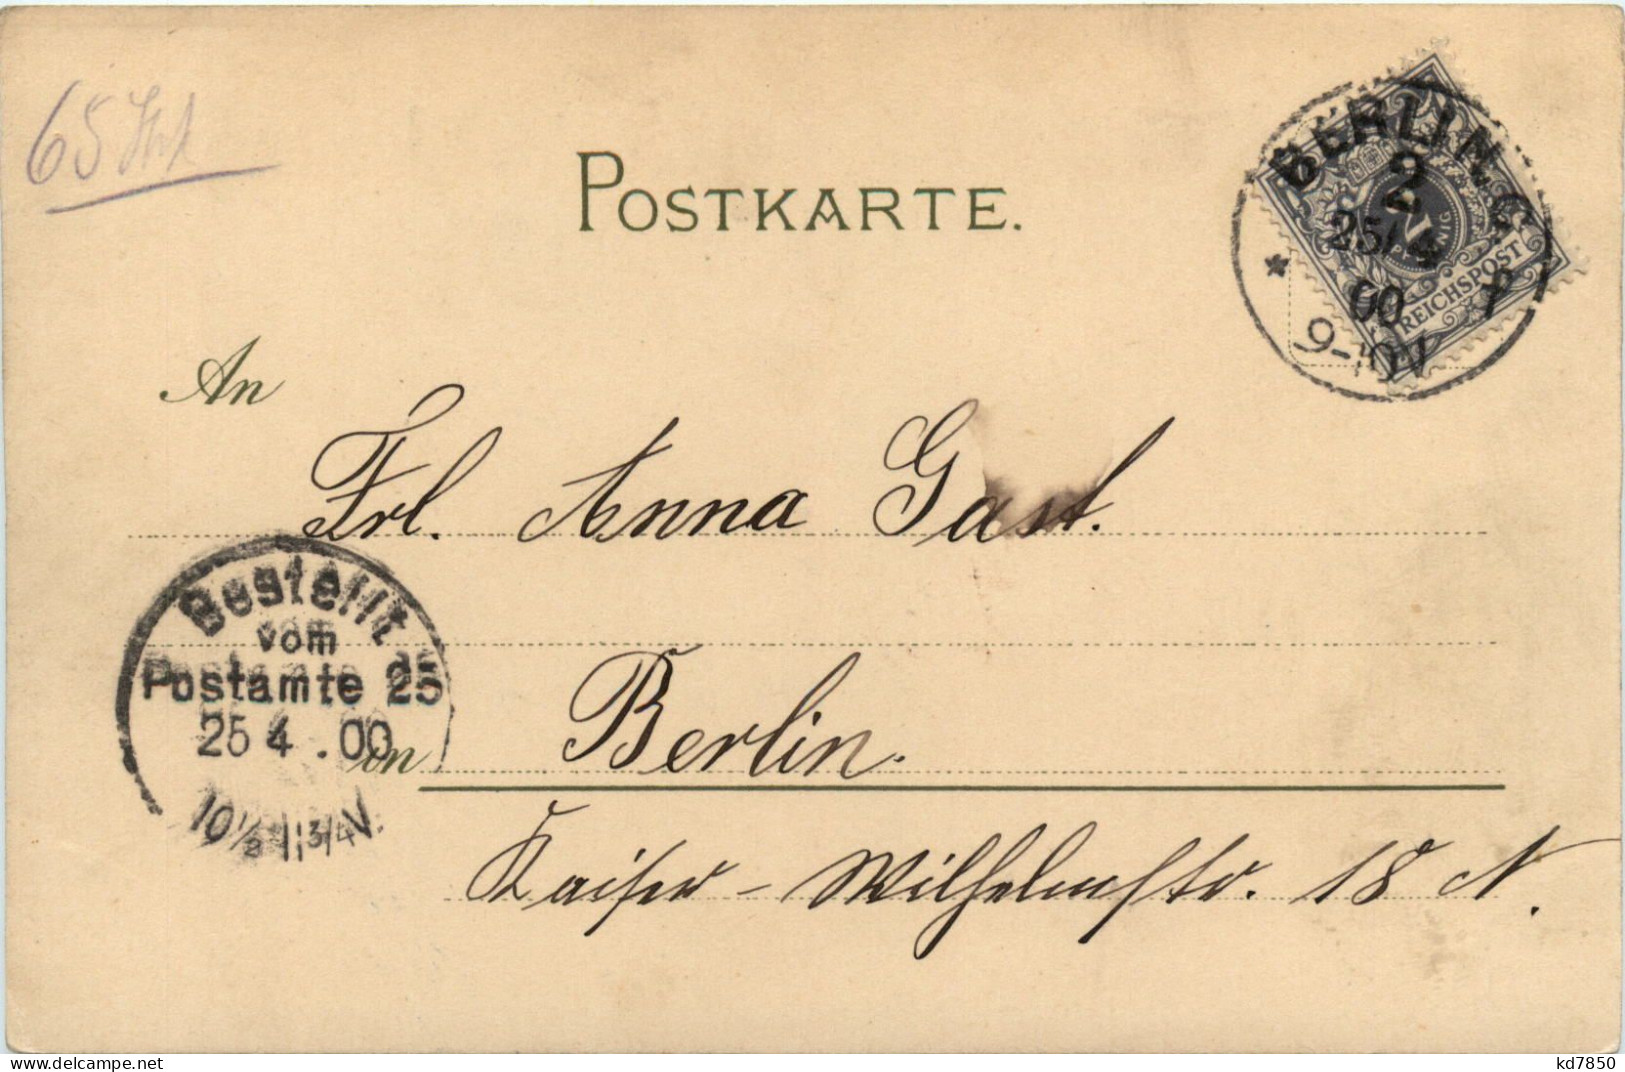 65
POSTKARTE.
BERLIN. C
2
25/4
00
9-10V
REICHSPOST
An
Frl. Anna Gast.
Bestellt
vom
Postamte 25
25 4 . 00
10½-11¾V.
in Berlin.
Kaiser-Wilhelmstr. 18 N.
www.delcampe.net
kd7850